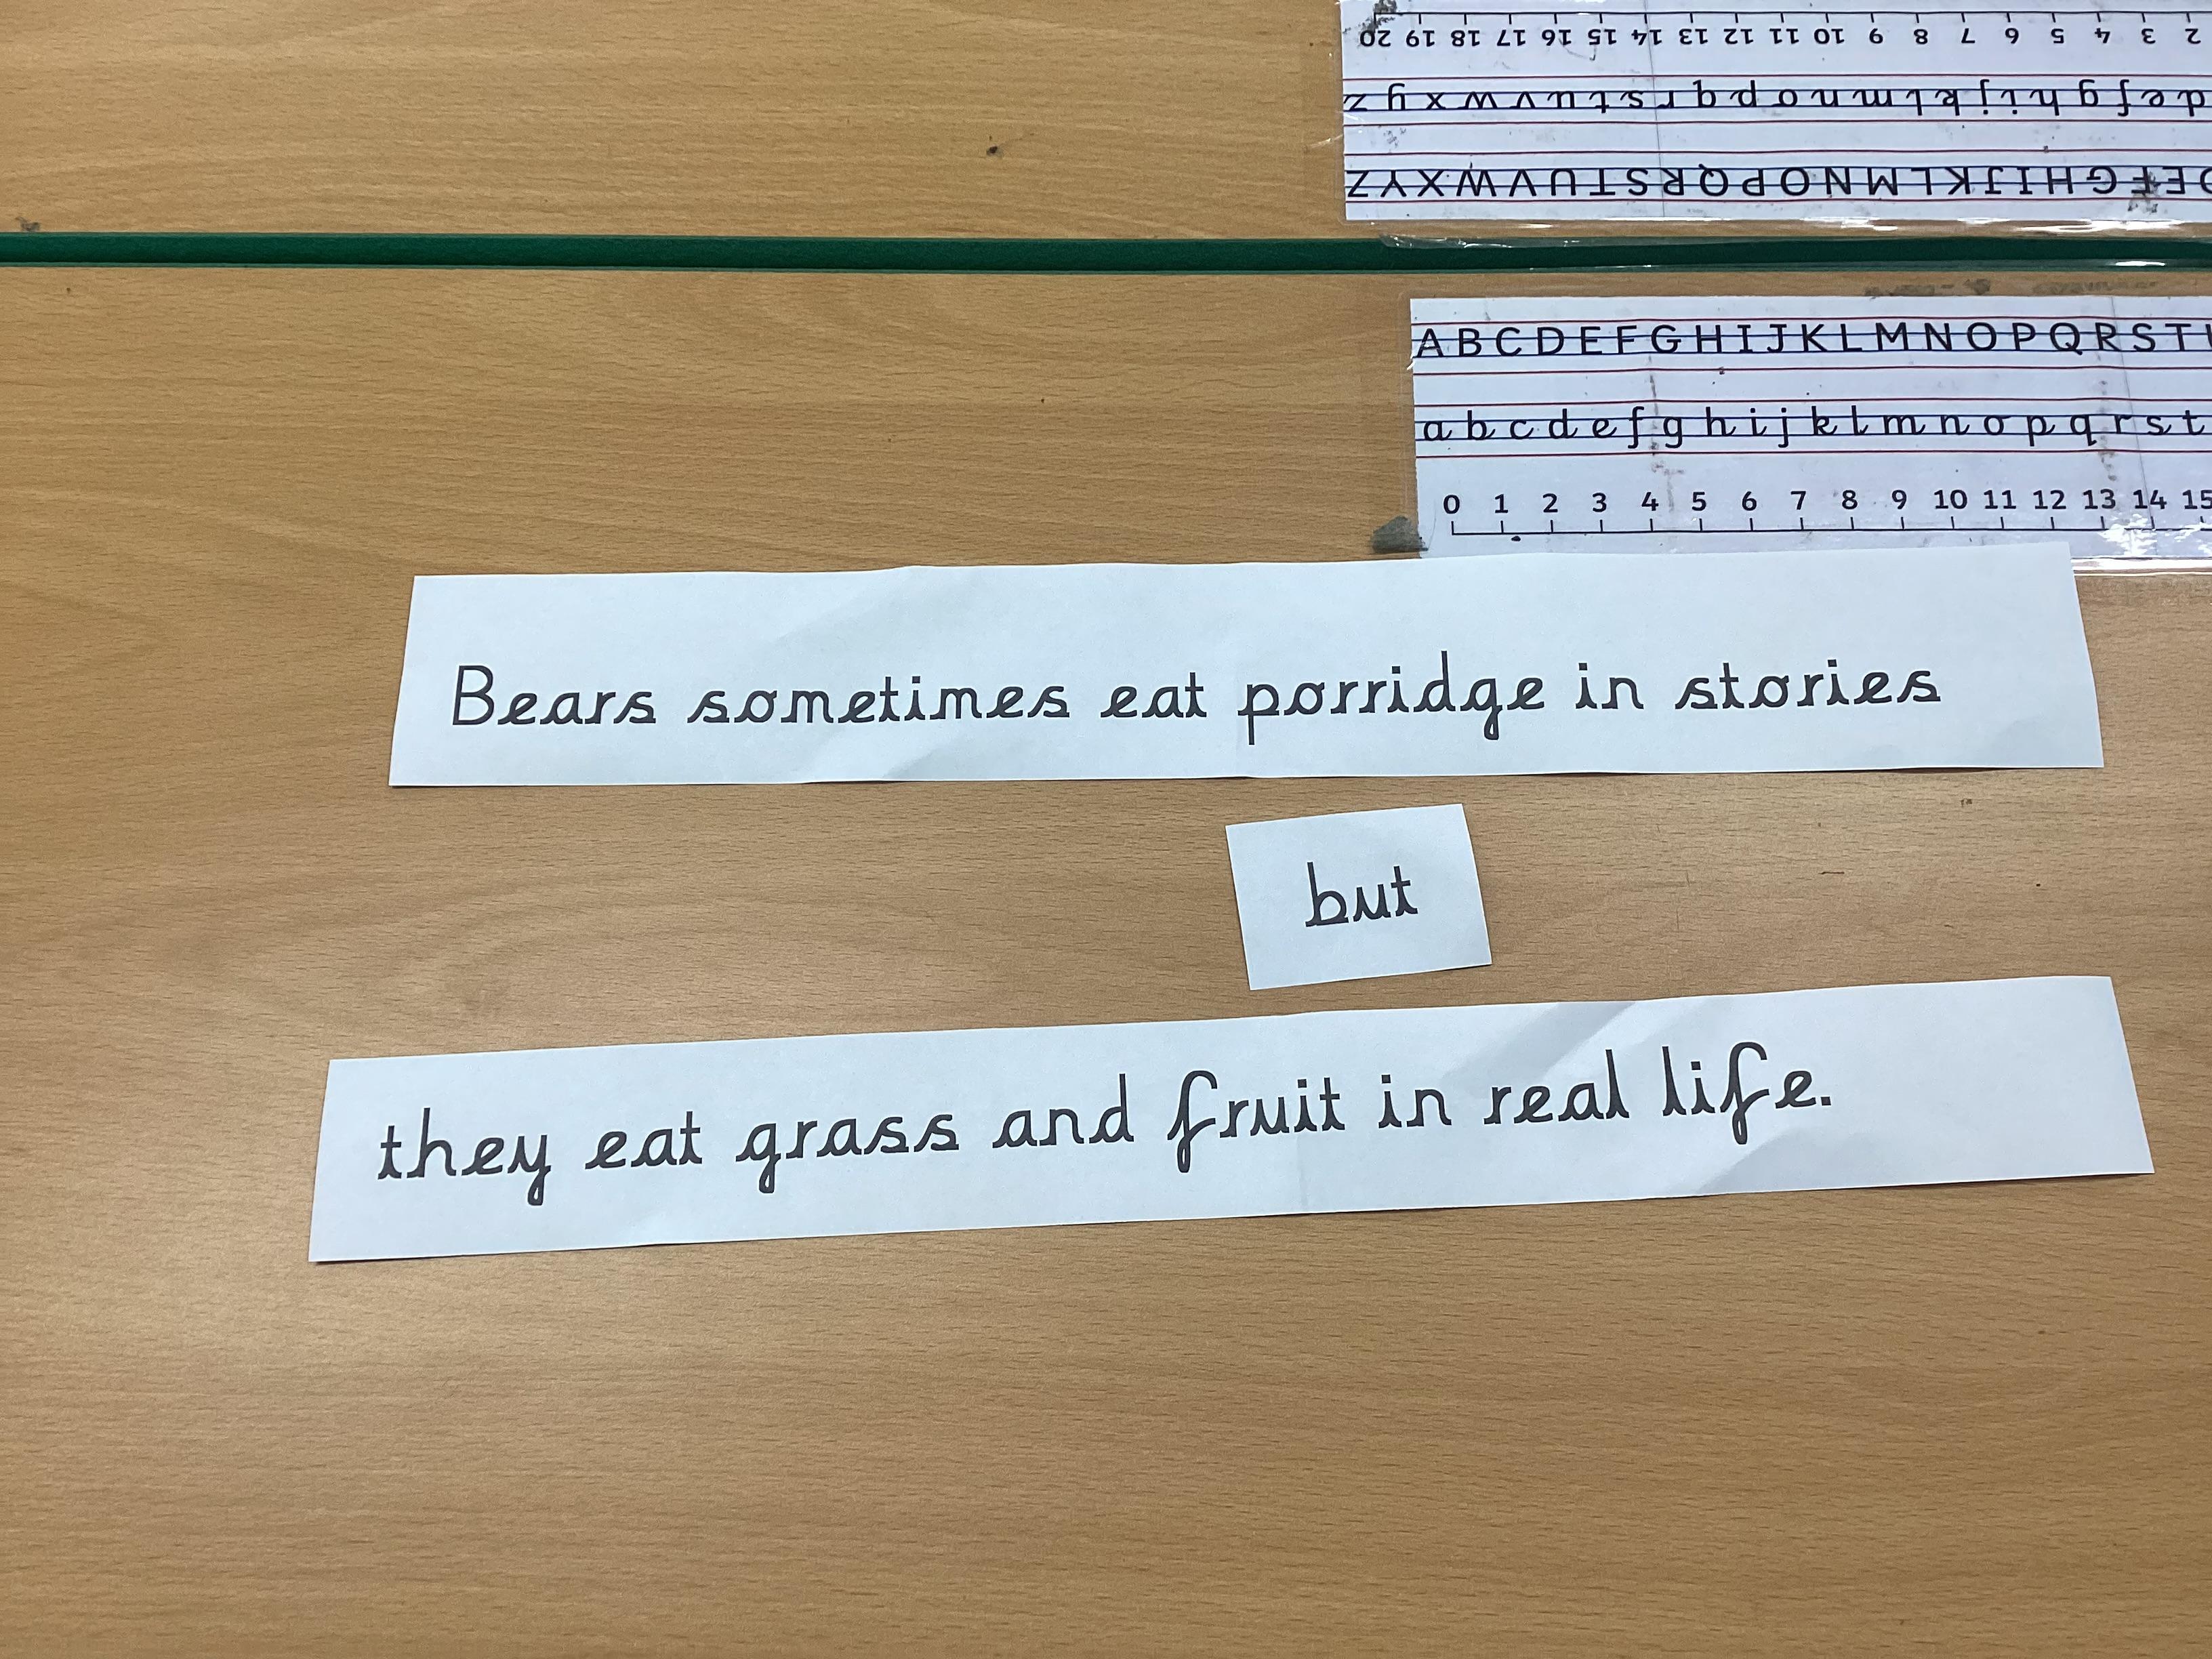 20 19 18 17 16 15 14 13 12 11 10 9 8 7 6 5 4 3 2
z y x w v u t s r q p o n m l k j i h g f e d
Z Y X W V U T S R Q P O N M L K J I H G F E D
A B C D E F G H I J K L M N O P Q R S T
a b c d e f g h i j k l m n o p q r s t
0 1 2 3 4 5 6 7 8 9 10 11 12 13 14 15
Bears sometimes eat porridge in stories
but
they eat grass and fruit in real life.